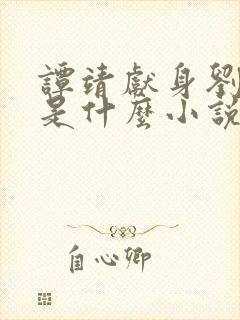 譚靖獻身劉
是什麼小說
自心卿